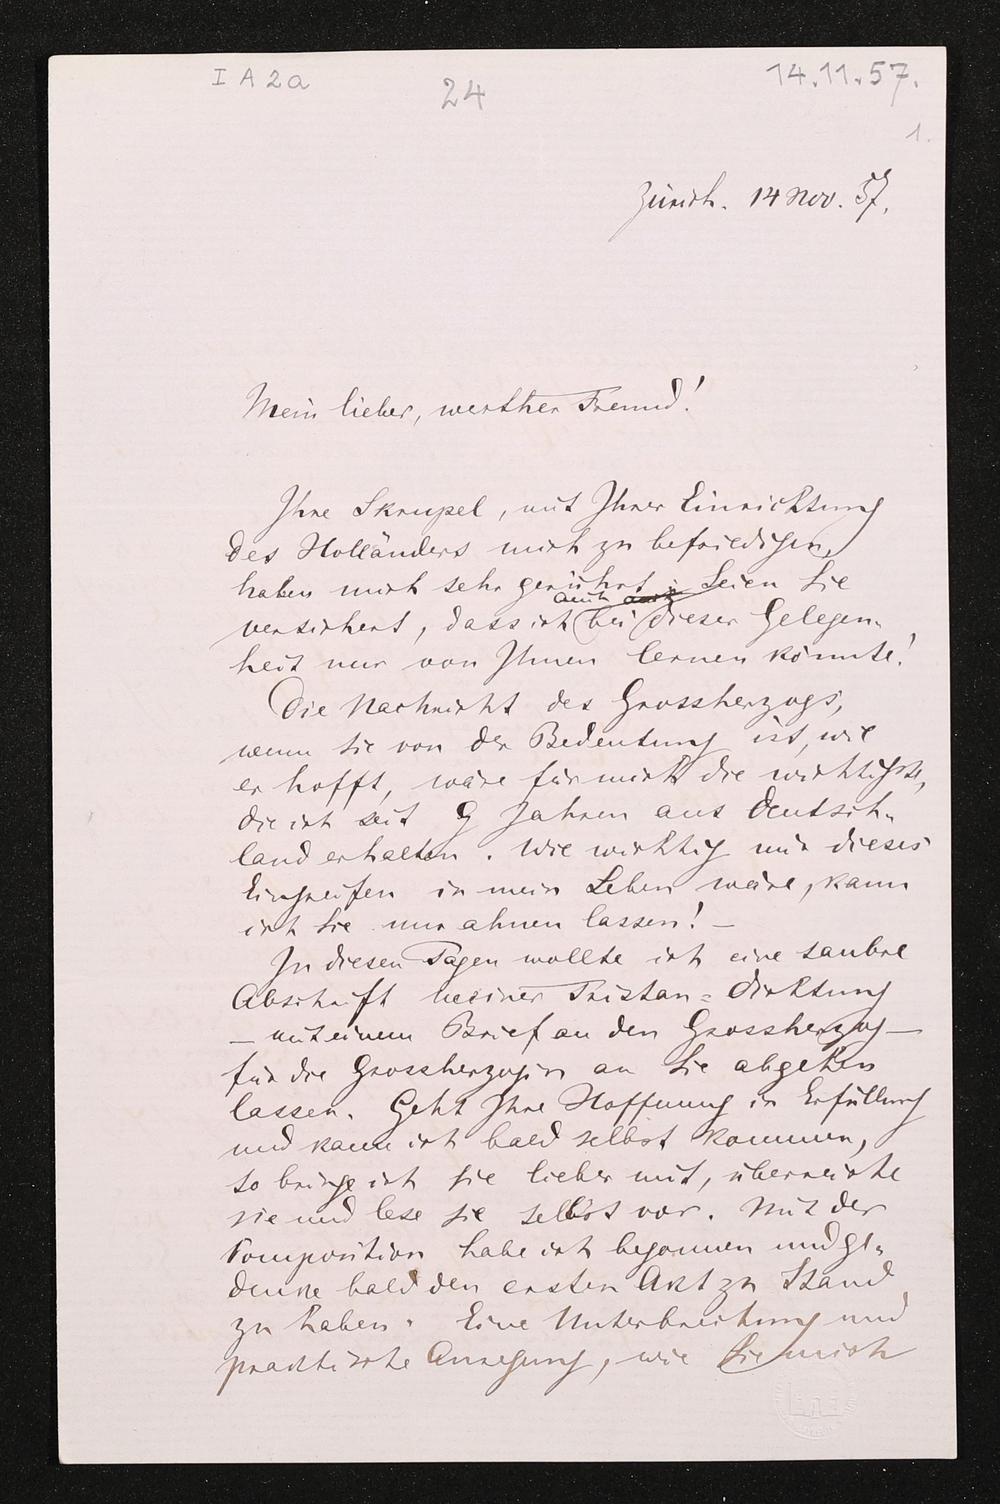 I A 2a
24
14.11.57.
1.
Zürich. 14 Nov. 57.
Mein lieber, werther Freund!
Ihre Skrupel, mit Ihrer Einrichtung
des Holländers mich zu befriedigen,
haben mich sehr gerührt: Seien Sie
auch
versichert, dass ich bei dieser Gelegen-
heit nur von Ihnen lernen könnte!
Die Nachricht des Grossherzogs,
wenn sie von der Bedeutung ist, wie
er hofft, wäre für mich die wichtigste,
die ich seit 9 Jahren aus Deutsch-
land erhalten. Wie wichtig mir dieses
Eingreifen in mein Leben wäre, kann
ich Sie nur ahnen lassen! —
In diesen Tagen wollte ich eine saubre
Abschrift meiner Tristan=Dichtung
— mit einem Brief an den Grossherzog —
für die Grossherzogin an Sie abgehen
lassen. Geht Ihre Hoffnung in Erfüllung
und kann ich bald selbst kommen,
so bringe ich sie lieber mit, überreiche
sie und lese sie selbst vor. Mit der
Komposition habe ich begonnen und ge-
denke bald den ersten Akt zu Stand
zu haben. Eine Unterbrechung und
praktische Anregung, wie Sie mich